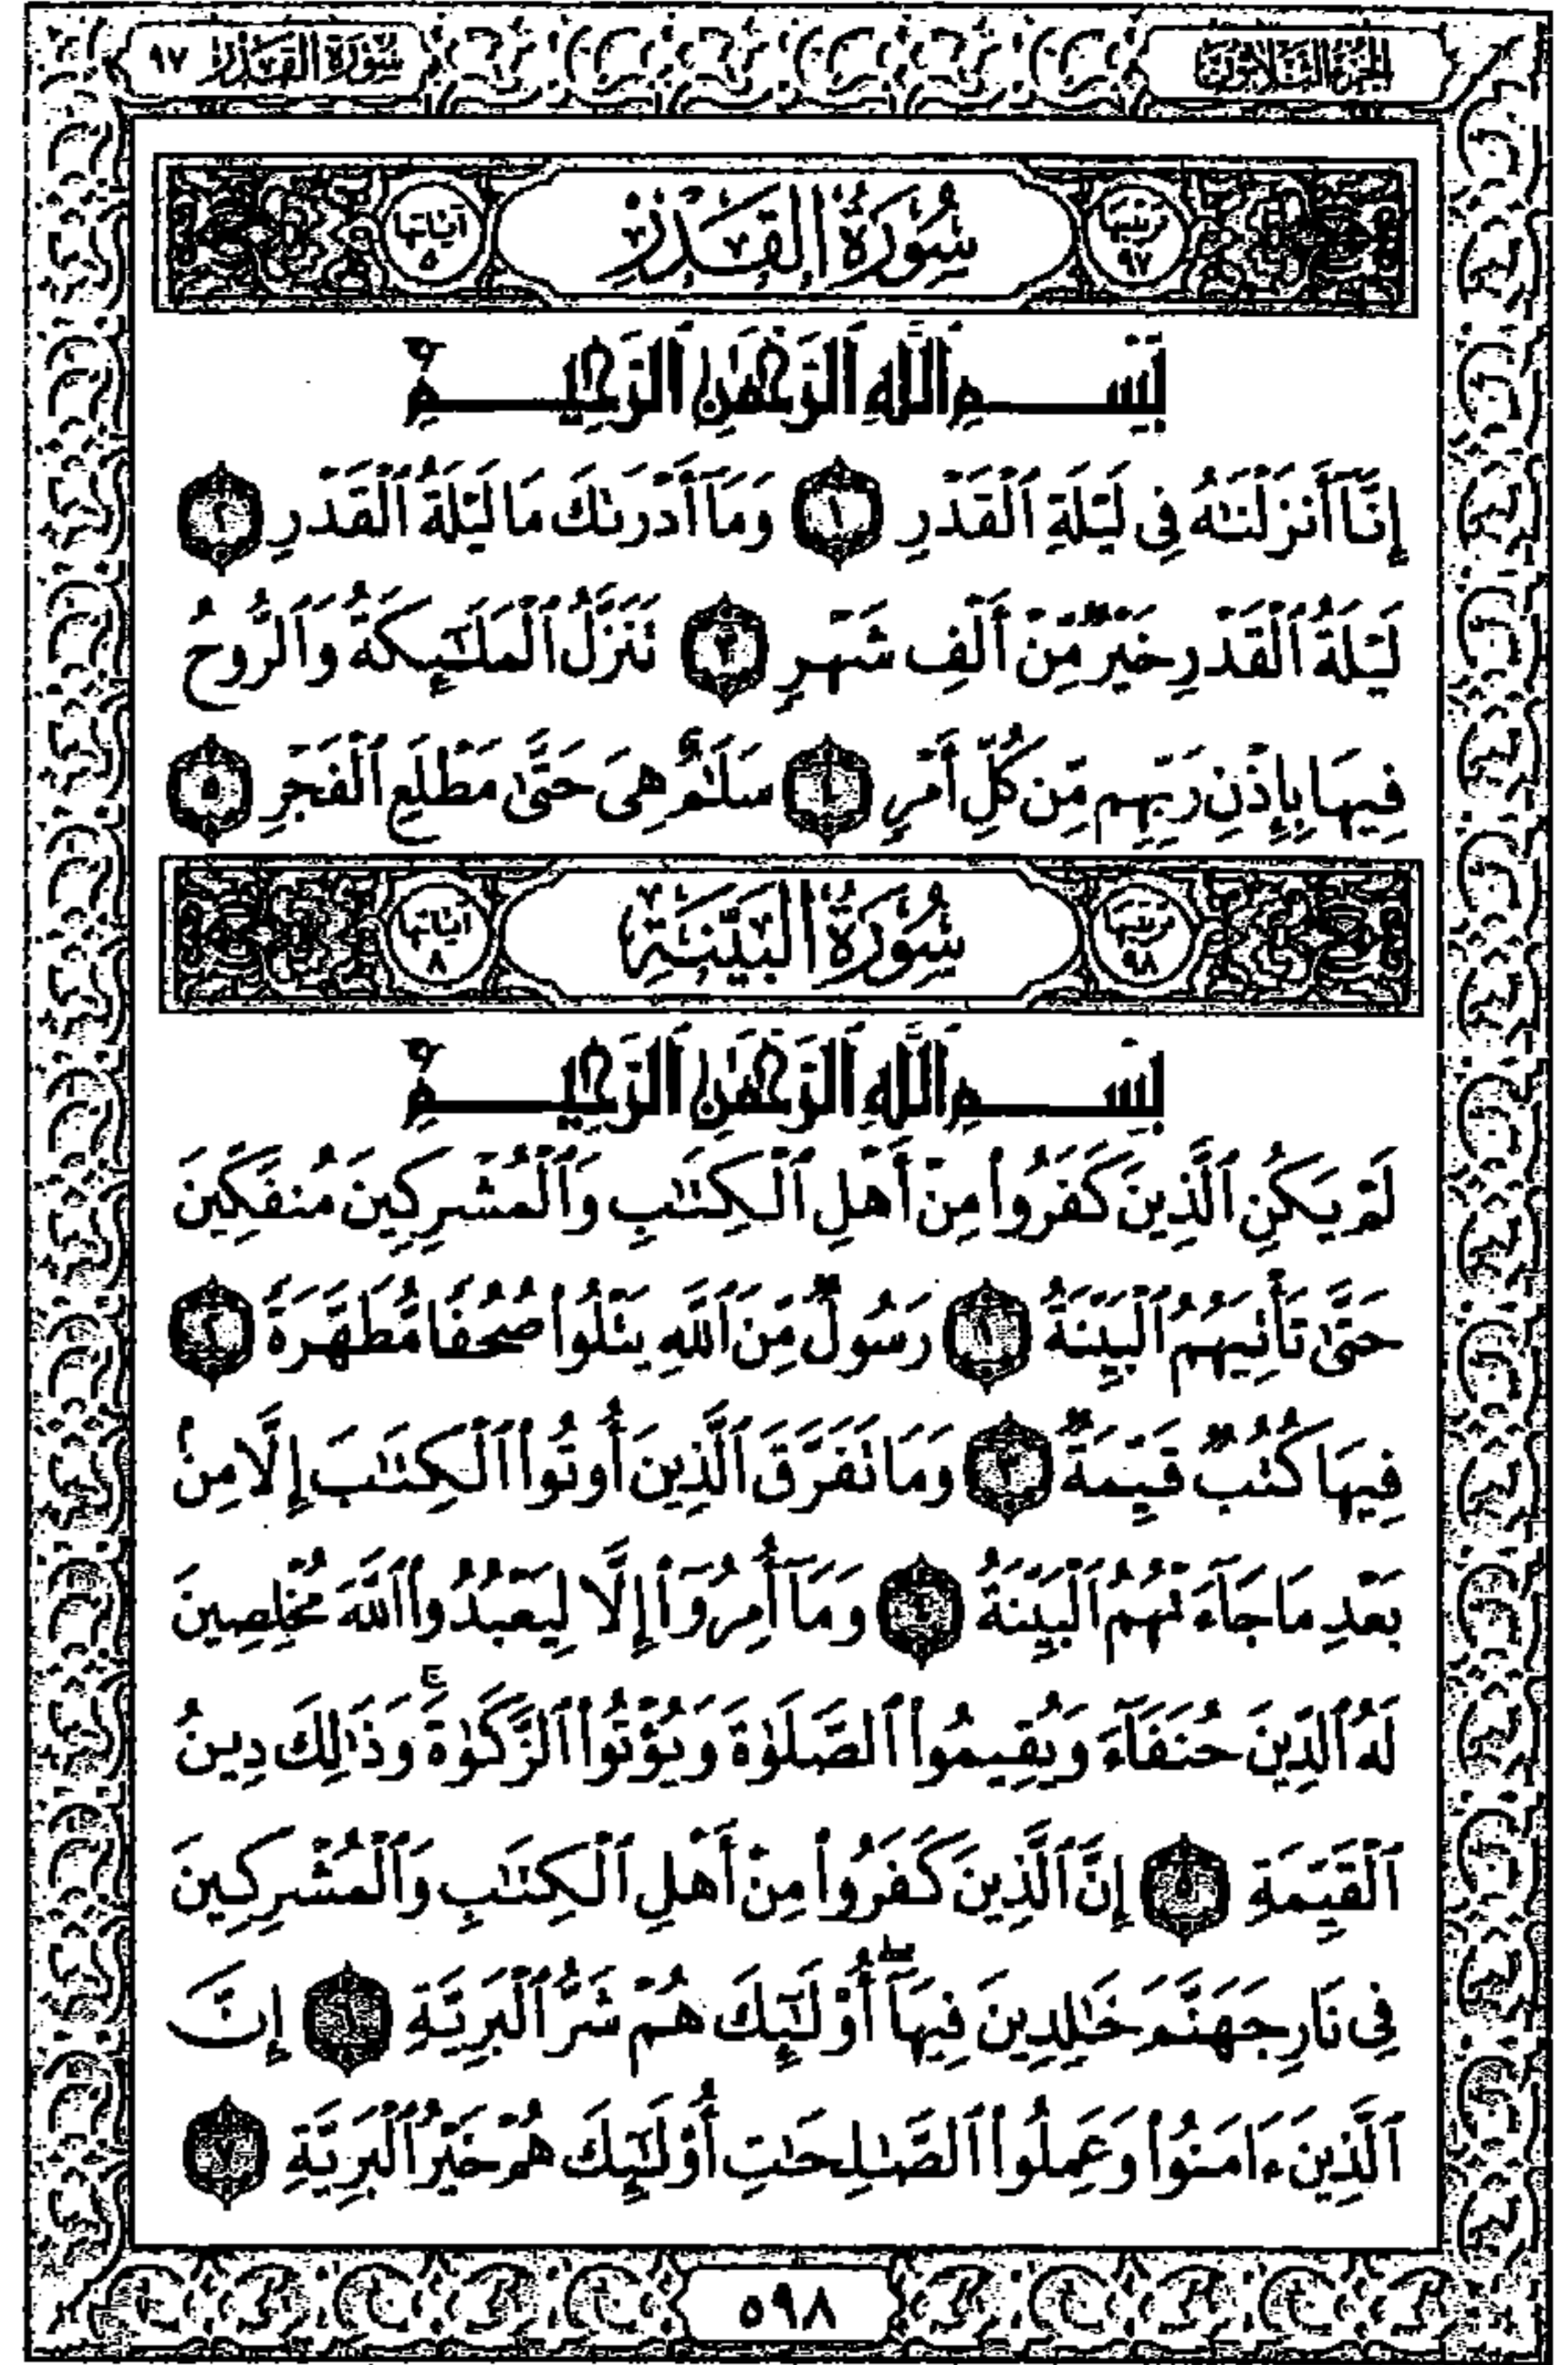 الجزء الثلاثون
سُورَةُ القَدْرِ ٩٧
ترتيبها ٩٧
سُورَةُ القَدْرِ
آياتها ٥
بِسْمِ ٱللَّهِ ٱلرَّحْمَٰنِ ٱلرَّحِيمِ
إِنَّآ أَنزَلْنَٰهُ فِى لَيْلَةِ ٱلْقَدْرِ ١ وَمَآ أَدْرَىٰكَ مَا لَيْلَةُ ٱلْقَدْرِ ٢
لَيْلَةُ ٱلْقَدْرِ خَيْرٌ مِّنْ أَلْفِ شَهْرٍ ٣ تَنَزَّلُ ٱلْمَلَٰٓئِكَةُ وَٱلرُّوحُ
فِيهَا بِإِذْنِ رَبِّهِم مِّن كُلِّ أَمْرٍ ٤ سَلَٰمٌ هِىَ حَتَّىٰ مَطْلَعِ ٱلْفَجْرِ ٥
ترتيبها ٩٨
سُورَةُ البَيِّنَةِ
آياتها ٨
بِسْمِ ٱللَّهِ ٱلرَّحْمَٰنِ ٱلرَّحِيمِ
لَمْ يَكُنِ ٱلَّذِينَ كَفَرُوا۟ مِنْ أَهْلِ ٱلْكِتَٰبِ وَٱلْمُشْرِكِينَ مُنفَكِّينَ
حَتَّىٰ تَأْتِيَهُمُ ٱلْبَيِّنَةُ ١ رَسُولٌ مِّنَ ٱللَّهِ يَتْلُوا۟ صُحُفًا مُّطَهَّرَةً ٢
فِيهَا كُتُبٌ قَيِّمَةٌ ٣ وَمَا تَفَرَّقَ ٱلَّذِينَ أُوتُوا۟ ٱلْكِتَٰبَ إِلَّا مِنۢ
بَعْدِ مَا جَآءَتْهُمُ ٱلْبَيِّنَةُ ٤ وَمَآ أُمِرُوٓا۟ إِلَّا لِيَعْبُدُوا۟ ٱللَّهَ مُخْلِصِينَ
لَهُ ٱلدِّينَ حُنَفَآءَ وَيُقِيمُوا۟ ٱلصَّلَوٰةَ وَيُؤْتُوا۟ ٱلزَّكَوٰةَ ۚ وَذَٰلِكَ دِينُ
ٱلْقَيِّمَةِ ٥ إِنَّ ٱلَّذِينَ كَفَرُوا۟ مِنْ أَهْلِ ٱلْكِتَٰبِ وَٱلْمُشْرِكِينَ
فِى نَارِ جَهَنَّمَ خَٰلِدِينَ فِيهَآ ۚ أُو۟لَٰٓئِكَ هُمْ شَرُّ ٱلْبَرِيَّةِ ٦ إِنَّ
ٱلَّذِينَ ءَامَنُوا۟ وَعَمِلُوا۟ ٱلصَّٰلِحَٰتِ أُو۟لَٰٓئِكَ هُمْ خَيْرُ ٱلْبَرِيَّةِ ٧
٥٩٨